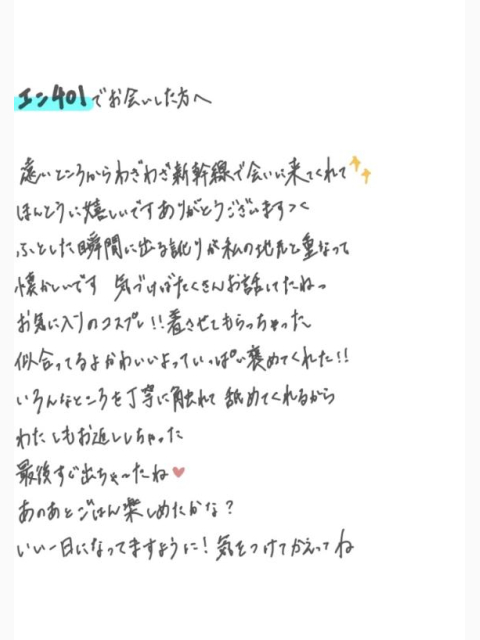 エン401でお会いした方へ
遠いところからわざわざ新幹線で会いに来てくれて
ほんとうに嬉しいですありがとうございますつく
ふとした瞬間に出る訛りが私の地元と重なって
懐かしいです 気づけばたくさんお話してたねっ
お気に入りのコスプレ!!着させてもらっちゃった
似合ってるよかわいいよっていっぱい褒めてくれた!!
いろんなところを丁寧に触れて 舐めてくれるから
わたしもお返ししちゃった
最後すご出ちゃったね
あのあとごはん楽しめたかな?
いい一日になってますように!気をつけてかえってね